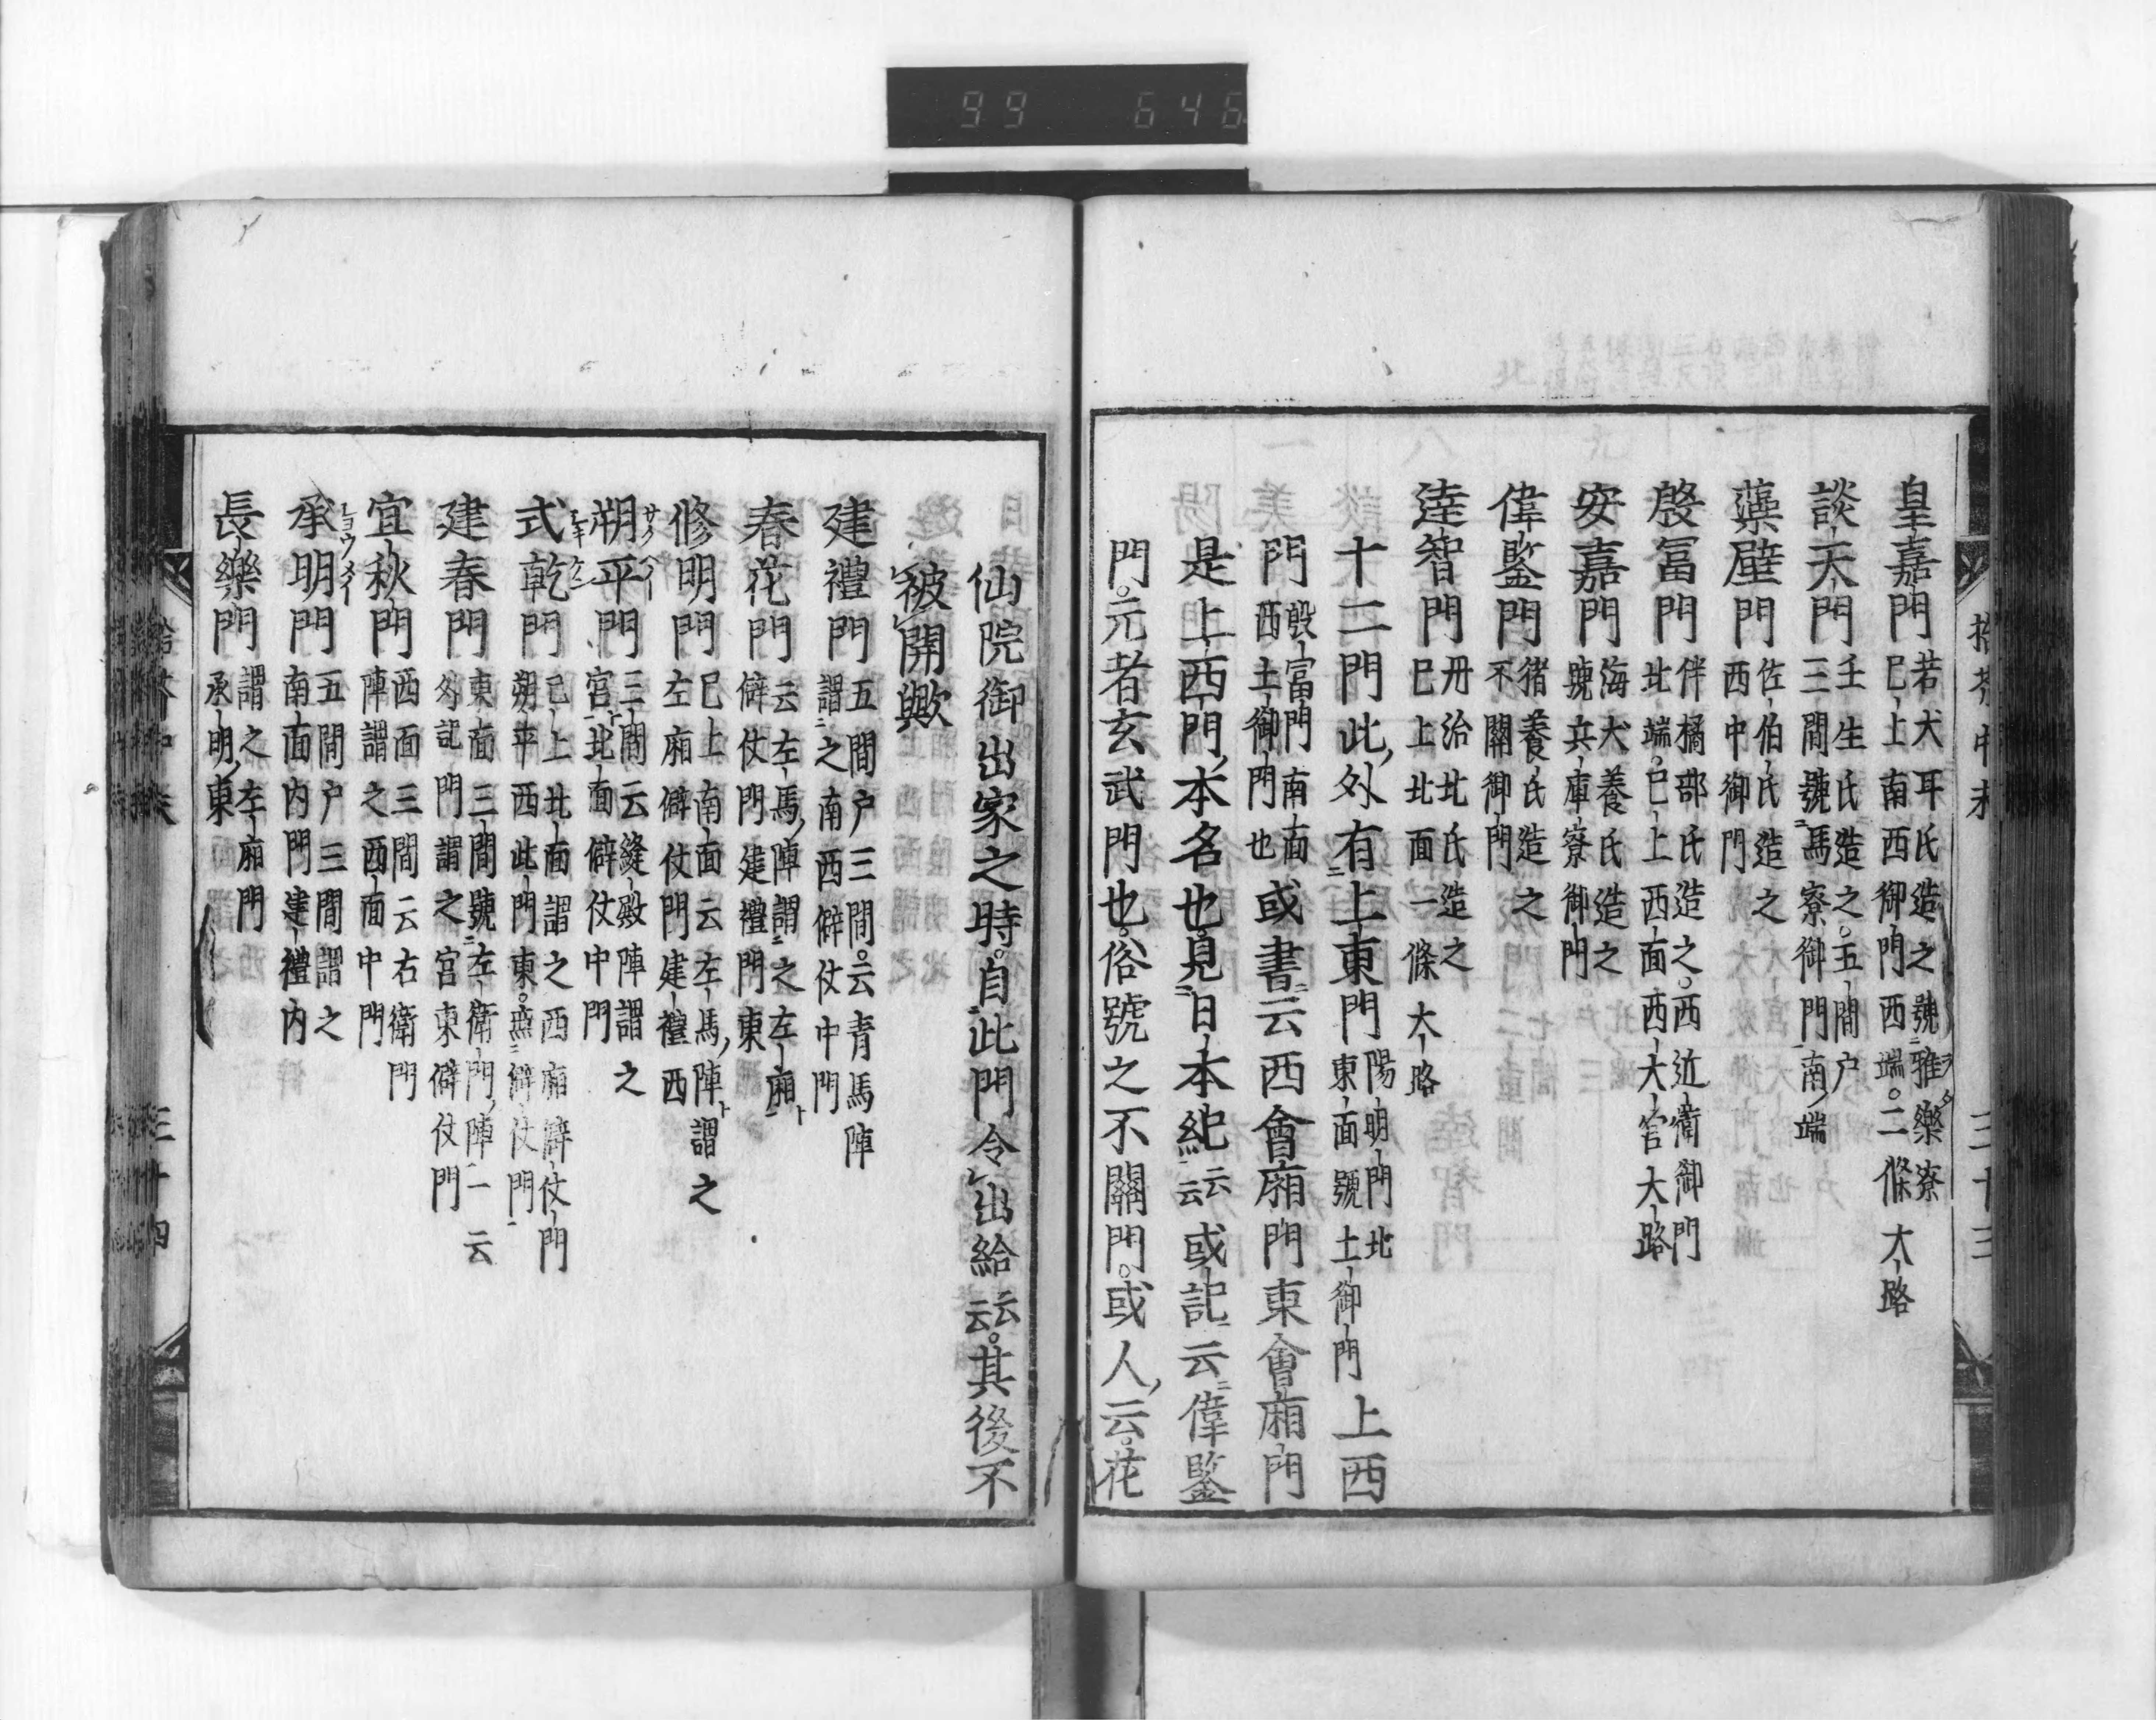 99 646
皇嘉門 若犬耳氏造之號雅樂寮
巳上南西御門西端。二條大路
談天門 壬生氏造之。五間戶
三間號馬寮御門南端
藻壁門 佐伯氏造之
西中御門
殷冨門 伴橘部氏造之。西近衛御門
北端。巳上西面西大宮大路
安嘉門 海犬養氏造之
號兵庫寮御門
偉鑒門 猪養氏造之
不開御門
達智門 丹治北氏造之
巳上北面一條大路
十二門此外有上東門 陽明門北
東面號土御門 上西
門 殷富門南面
西土御門也 或書云西會廂門東會廂門
是上西門本名也見日本紀云云或記云偉鑒
門。元者玄武門也。俗號之不關門。或人云。花
仙院御出家之時。自此門令出給云云。其後不
被開歟
建禮門 五間户三間。云青馬陣
謂之南西僻仗中門
春花門 云左馬陣謂之左廂
僻仗門建禮門東
修明門 巳上南面云左馬陣謂之
左廂僻仗門建禮西
朔平門 三間云縫殿陣謂之
宮北面僻仗中門
式乾門 巳上北面謂之西廂僻仗門
朔平西此門東。無僻仗門
建春門 東面三間號左衛門陣一云
外記門謂之宮東僻仗門
宜秋門 西面三間云右衛門
陣謂之西面中門
承明門 五間户三間謂之
南面内門建禮内
長樂門 謂之左廂門
承明東
拾芥中末 三十三
三十四